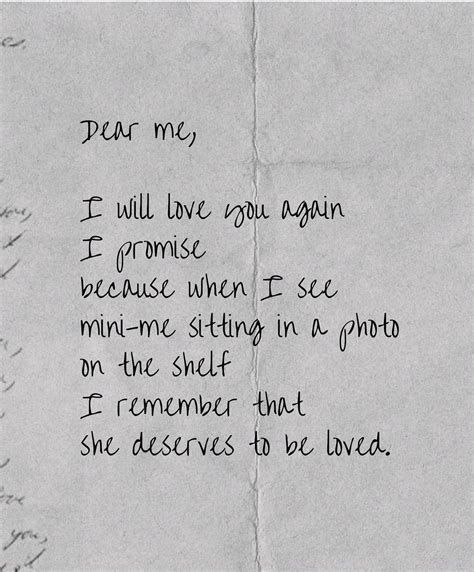 Dear me,
I will love you again
I promise
because when I see
mini-me sitting in a photo
on the shelf
I remember that
she deserves to be loved.
you,